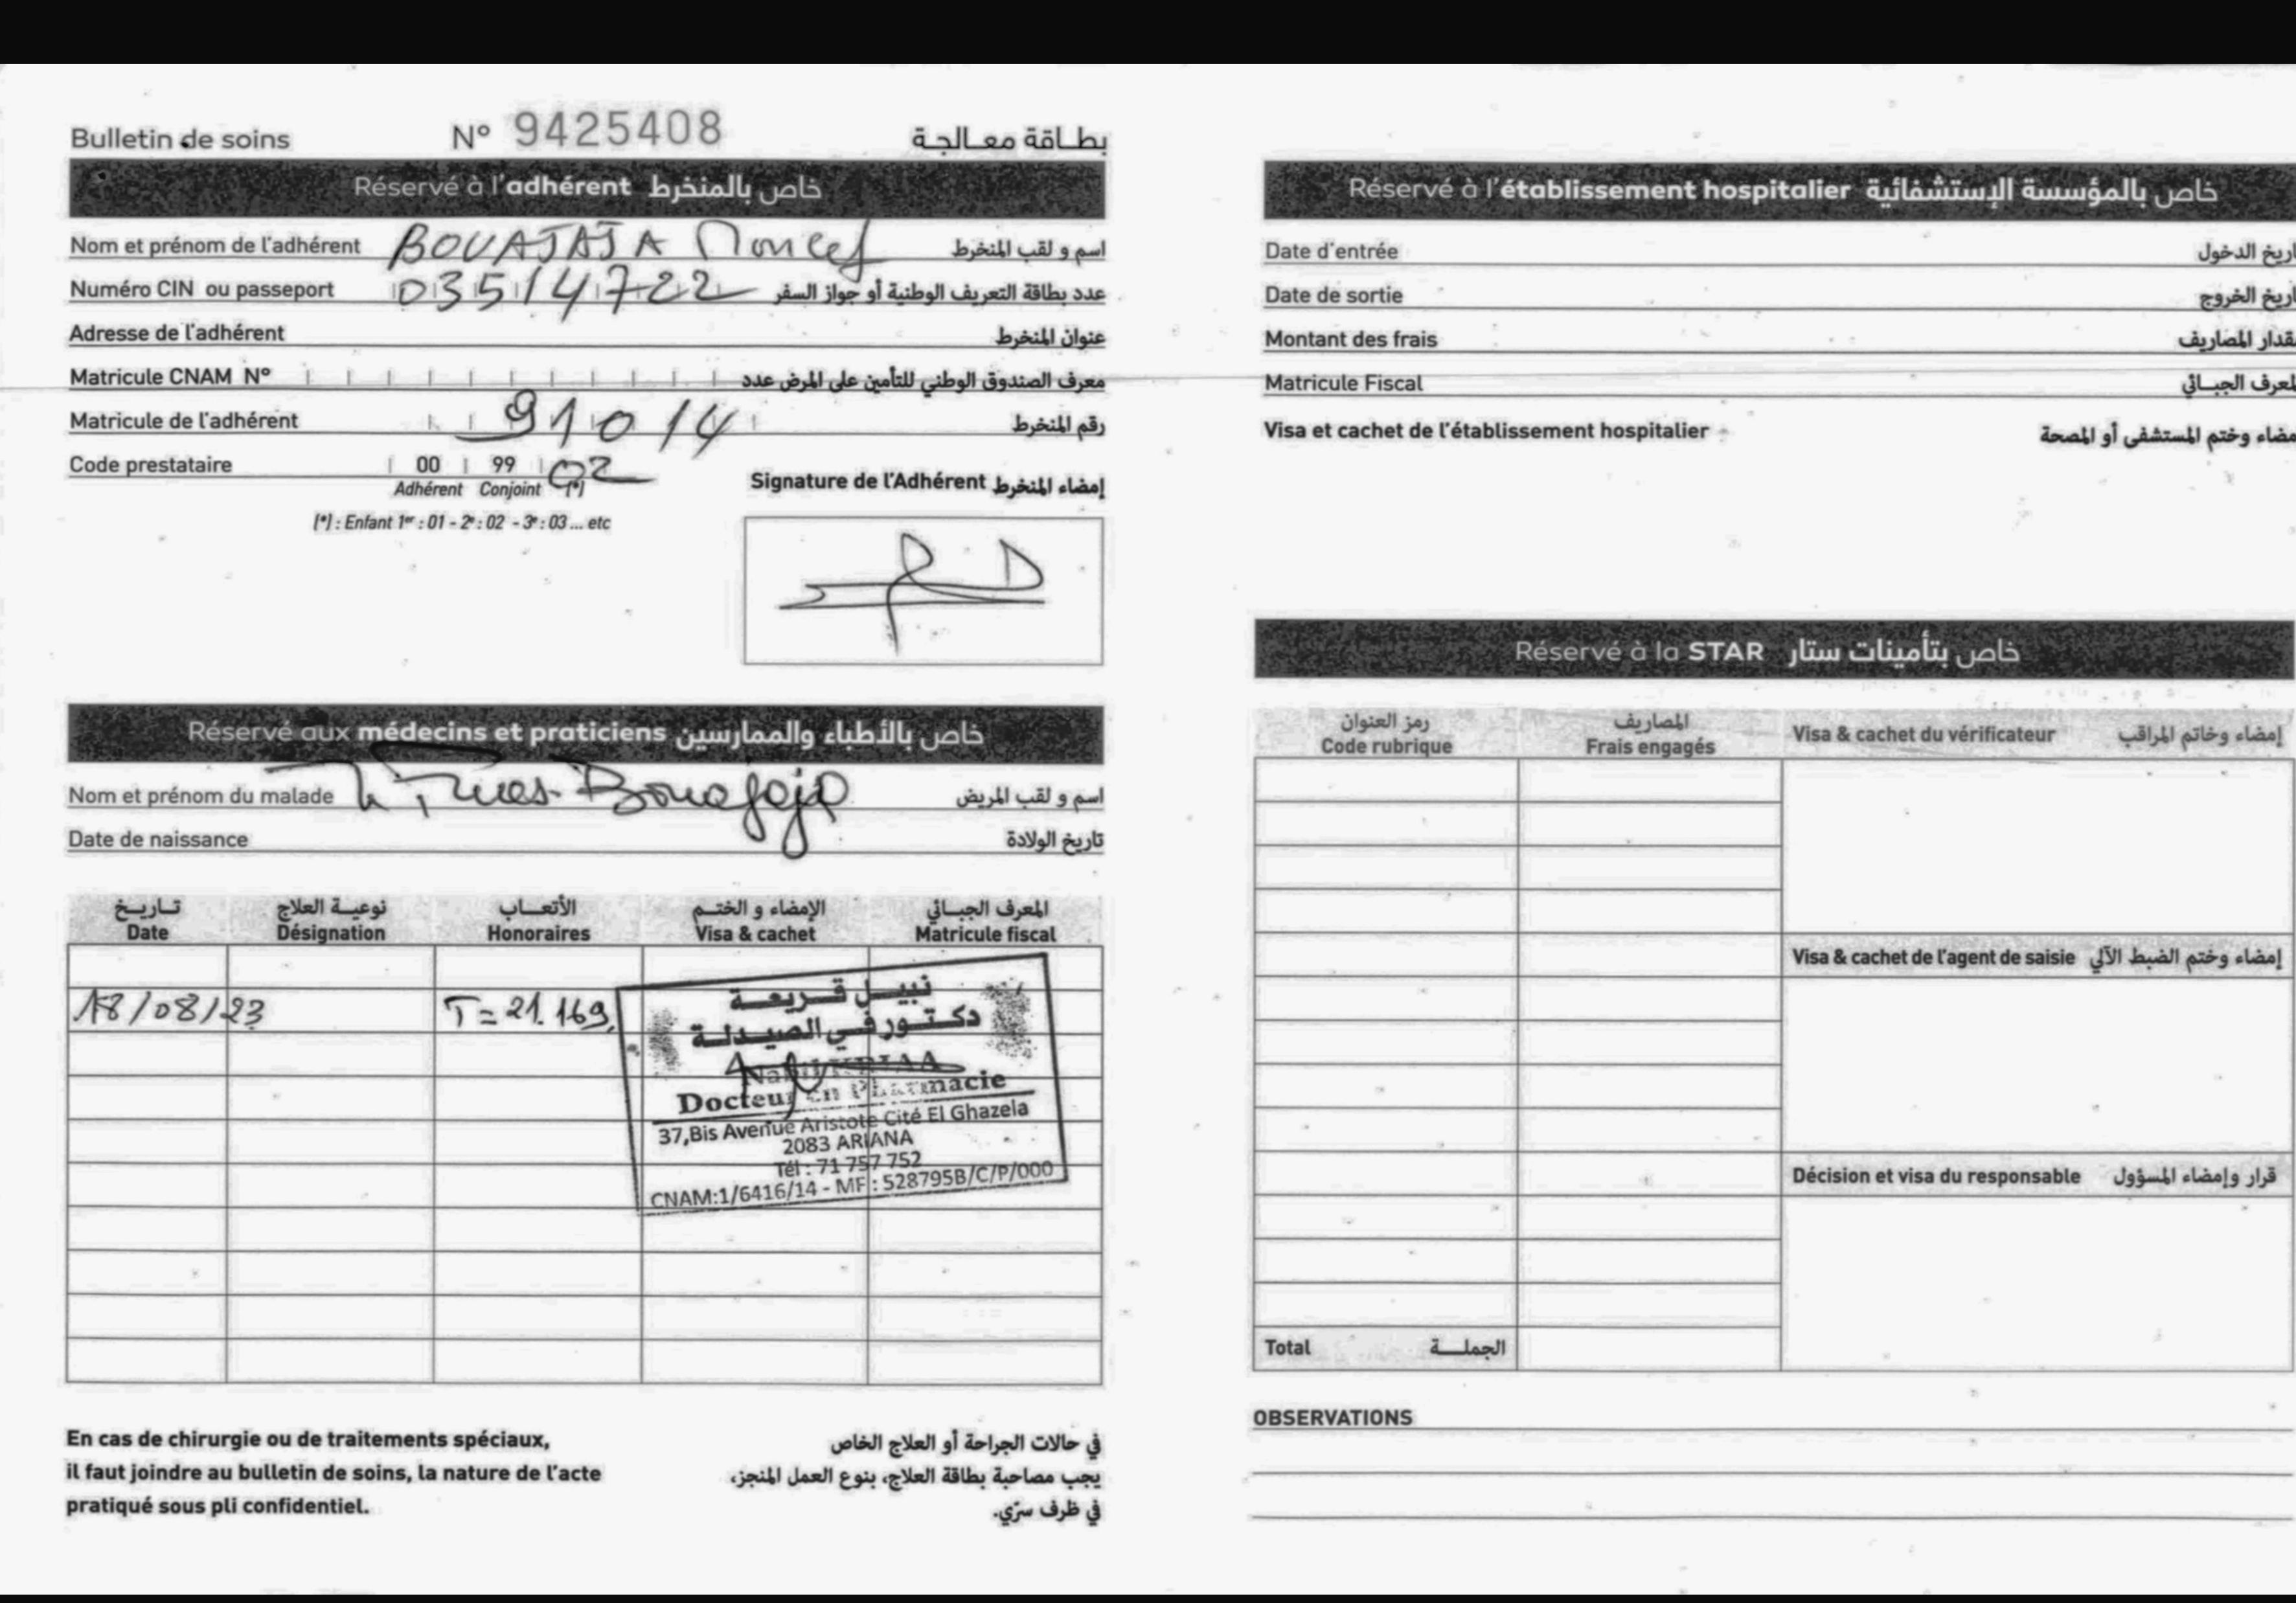 Bulletin de soins N° 9425408 بطاقة معالجة
Réservé à l'adhérent خاص بالمنخرط
Nom et prénom de l'adhérent BOUAJAJA Moncef اسم و لقب المنخرط
Numéro CIN ou passeport 03514722 عدد بطاقة التعريف الوطنية أو جواز السفر
Adresse de l'adhérent عنوان المنخرط
Matricule CNAM N° معرف الصندوق الوطني للتأمين على المرض عدد
Matricule de l'adhérent 91014 رقم المنخرط
Code prestataire 00 99 02
Adhérent Conjoint (*)
(*) : Enfant 1er : 01 - 2e : 02 - 3e : 03 ... etc
Signature de l'Adhérent إمضاء المنخرط
Réservé aux médecins et praticiens خاص بالأطباء والممارسين
Nom et prénom du malade Bouajaja اسم و لقب المريض
Date de naissance تاريخ الولادة
تاريخ نوعية العلاج الأتعاب الإمضاء و الختم المعرف الجبائي
Date Désignation Honoraires Visa & cachet Matricule fiscal
18/08/23 T = 21.169
نبيل قريعة
دكتور في الصيدلة
Nabil KRIAA
Docteur en Pharmacie
37,Bis Avenue Aristote Cité El Ghazela
2083 ARIANA
Tél : 71 757 752
CNAM:1/6416/14 - MF : 528795B/C/P/000
En cas de chirurgie ou de traitements spéciaux,
il faut joindre au bulletin de soins, la nature de l'acte
pratiqué sous pli confidentiel.
في حالات الجراحة أو العلاج الخاص
يجب مصاحبة بطاقة العلاج، بنوع العمل المنجز،
في ظرف سرّي.
Réservé à l'établissement hospitalier خاص بالمؤسسة الإستشفائية
Date d'entrée اريخ الدخول
Date de sortie اريخ الخروج
Montant des frais قدار المصاريف
Matricule Fiscal لمعرف الجبائي
Visa et cachet de l'établissement hospitalier مضاء وختم المستشفى أو المصحة
Réservé à la STAR خاص بتأمينات ستار
رمز العنوان المصاريف
Code rubrique Frais engagés Visa & cachet du vérificateur إمضاء وخاتم المراقب
Visa & cachet de l'agent de saisie إمضاء وختم الضبط الآلي
Décision et visa du responsable قرار وإمضاء المسؤول
Total الجملة
OBSERVATIONS